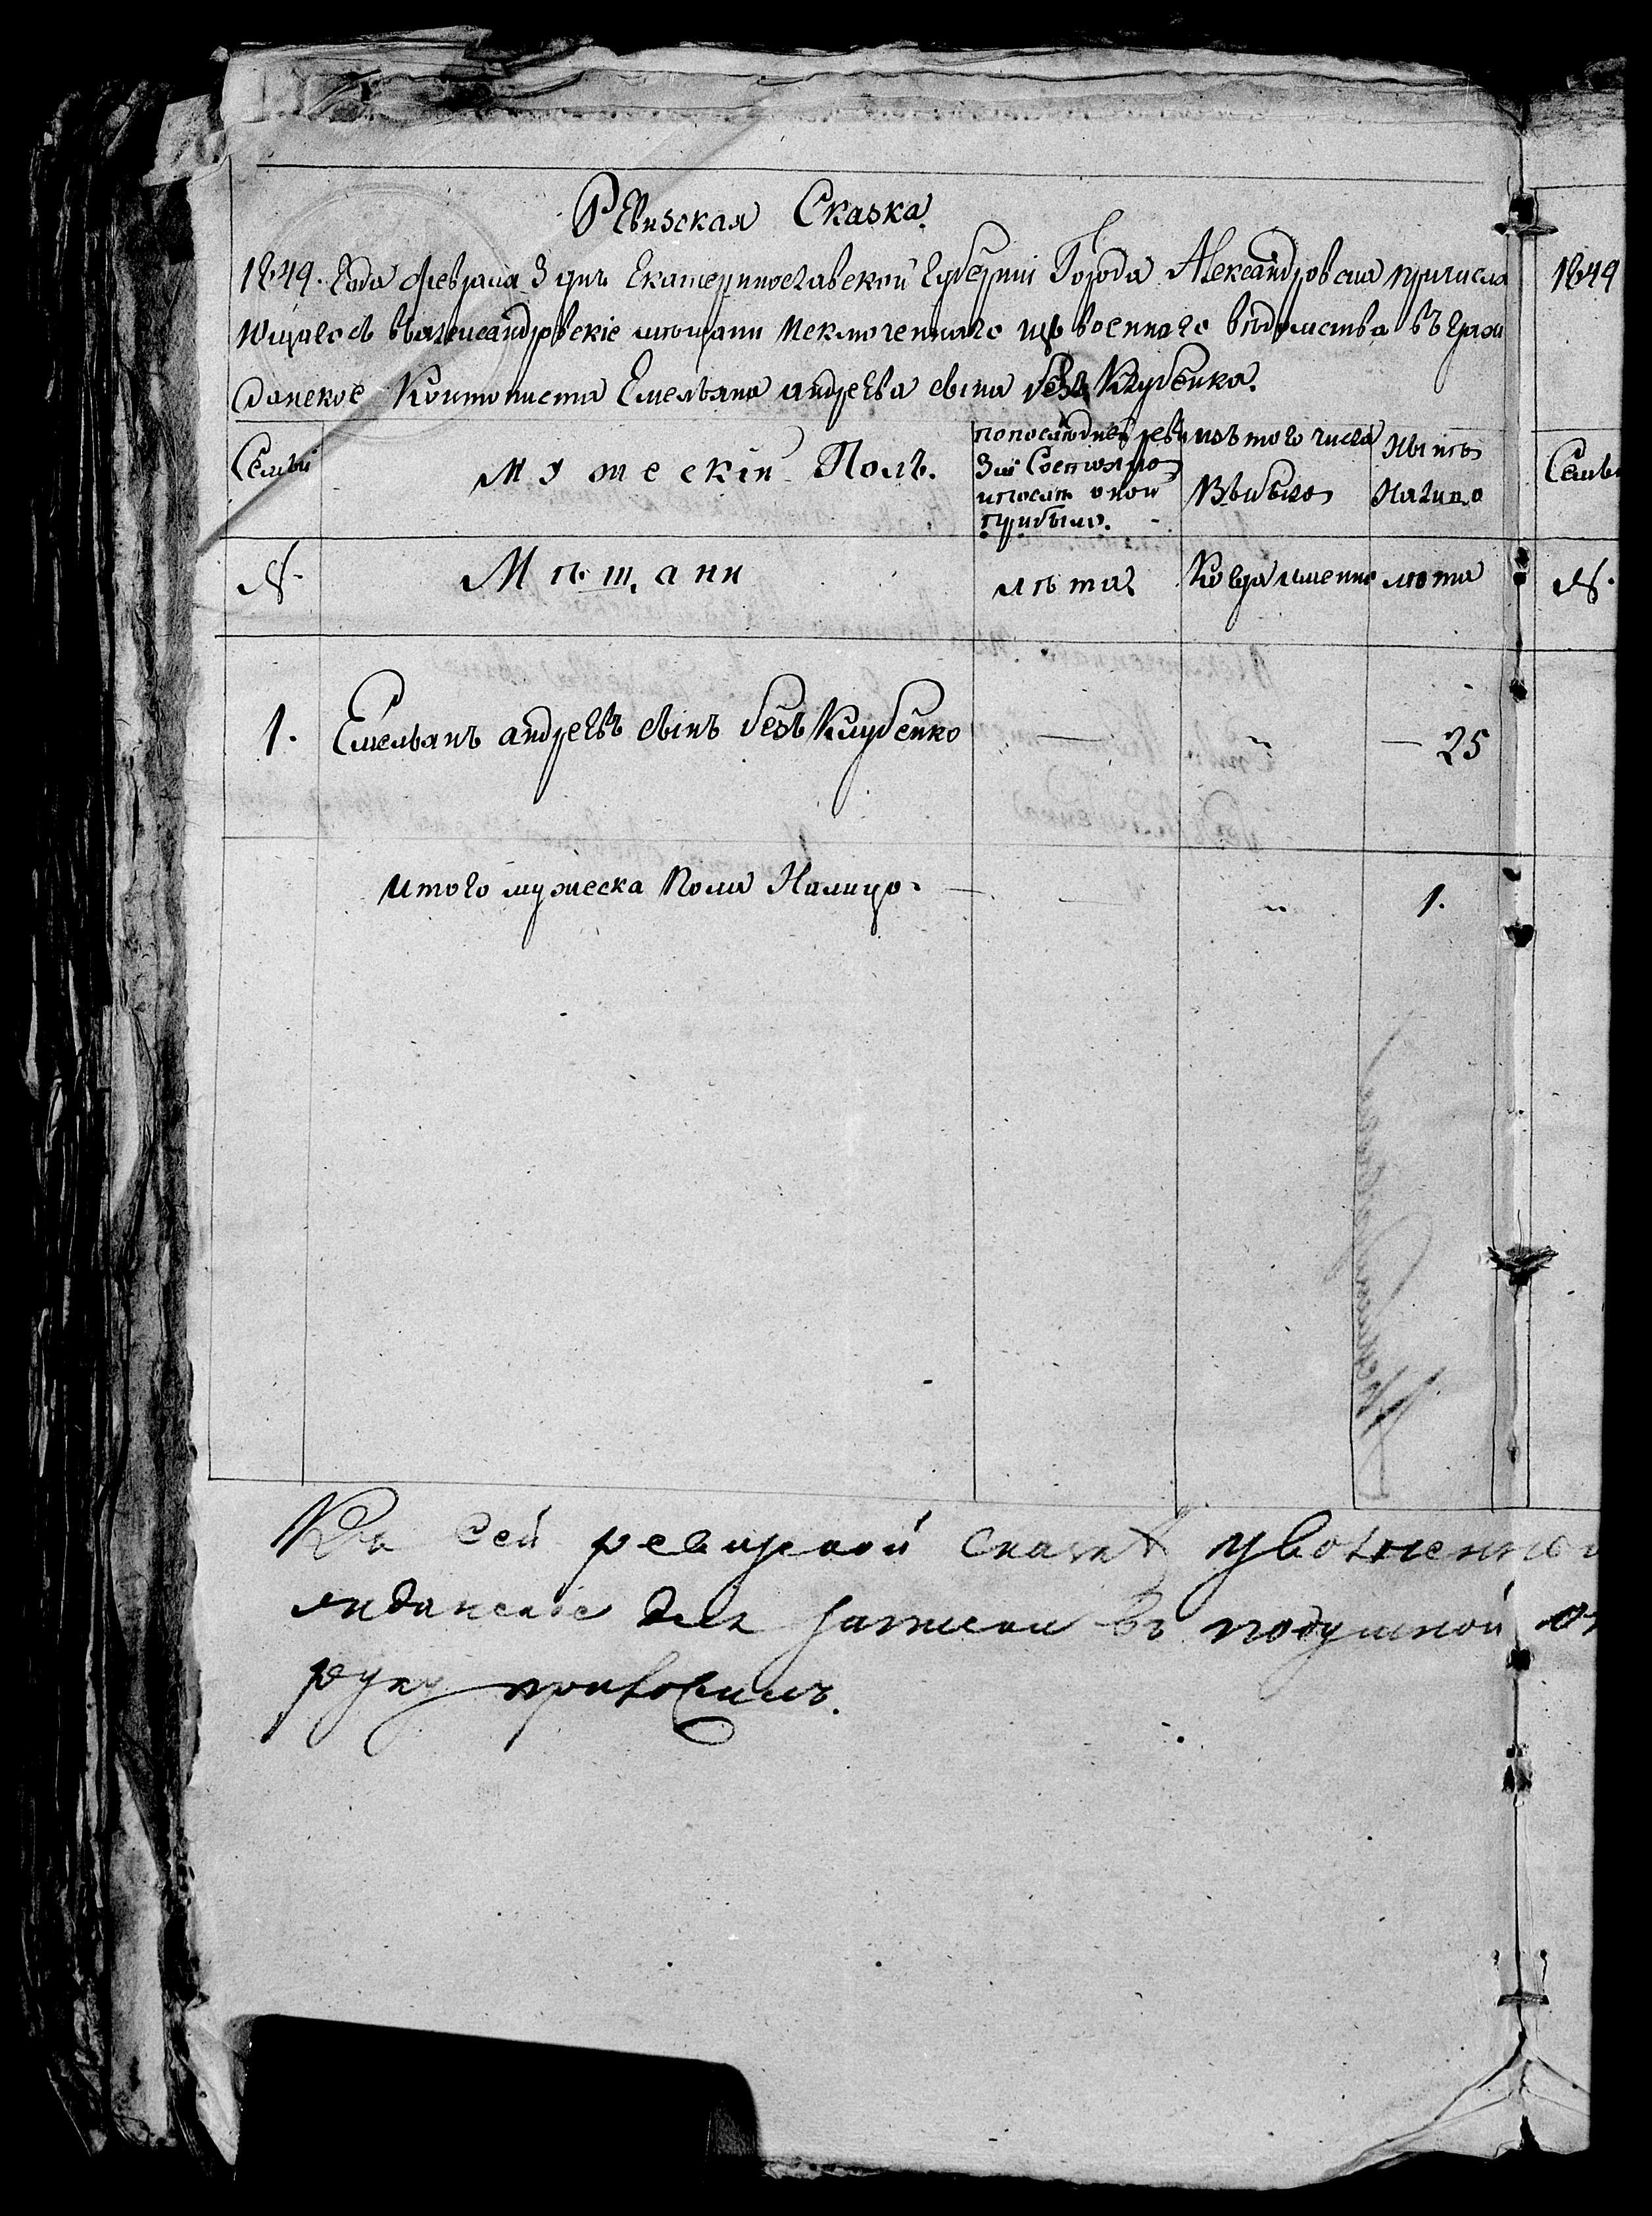 Ревизская Сказка.
1849. Года февраля 3 дня Екатеринославской Губерніи Города Александровска причисли
вшагось въ александровскіе мѣщани исключеннаго изъ военнаго вѣдомства въ граж
данское Кантониста Емельяна андреева сына безъ Клубенка.
Семьи
Мужескій Полъ.
по последней реви
зіи Состояло
и послѣ оной
прибыло.
изъ того числа
Выбыло
Нынѣ
На лицо
№.
Мѣщани
лѣта
Когда именно
лѣта
1. Емельянъ андреевъ сынъ безъ Клубенко — " — 25
Итого мужеска пола На лицо. — — " 1.
Къ сей ревизской сказкѣ
для записки въ подушной
руку приложилъ.
1849
Семьи
№.